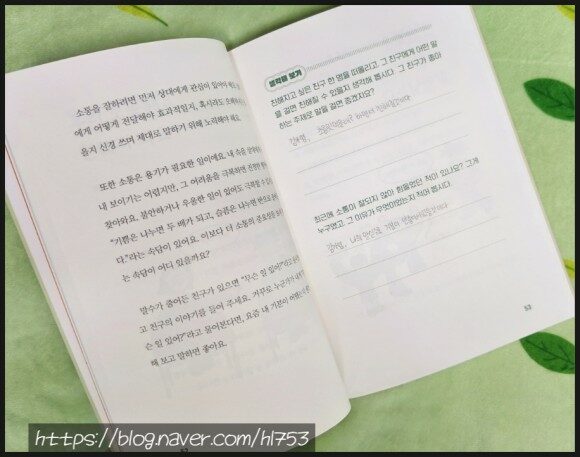 소통을 잘하려면 먼저 상대에게 관심이 있어야
에게 어떻게 전달해야 효과적일지, 혹시라도
을지 신경 쓰며 제대로 말하기 위해 노력해야 해요.
또한 소통은 용기가 필요한 일이에요. 내 속을
내 보이기는 어렵지만, 그 어려움을 극복하면 진정한
찾아와요. 불안하거나 우울한 일이 있어도 극복할 수
"기쁨은 나누면 두 배가 되고, 슬픔은 나누면 반으로
다."라는 속담이 있어요. 이보다 더 소통의 중요성을
는 속담이 어디 있을까요?
말수가 줄어든 친구가 있으면 "무슨 일 있어?"라고
고 친구의 이야기를 들어 주세요. 거꾸로 누군가가
슨 일 있어?"라고 물어본다면, 요즘 내 기분이 어땠는지
해 보고 말하면 좋아요.
생각을 보기
친해지고 싶은 친구 한 명을 떠올리고, 그 친구에게 어떤 말
을 걸면 친해질 수 있을지 생각해 봅시다. 그 친구가 좋아
하는 주제로 말을 걸면 좋겠지요?
최근에 소통이 잘되지 않아 힘들었던 적이 있나요? 그게
누구였고, 그 이유가 무엇이었는지 적어 봅시다.
53
52
https://blog.naver.com/hl753